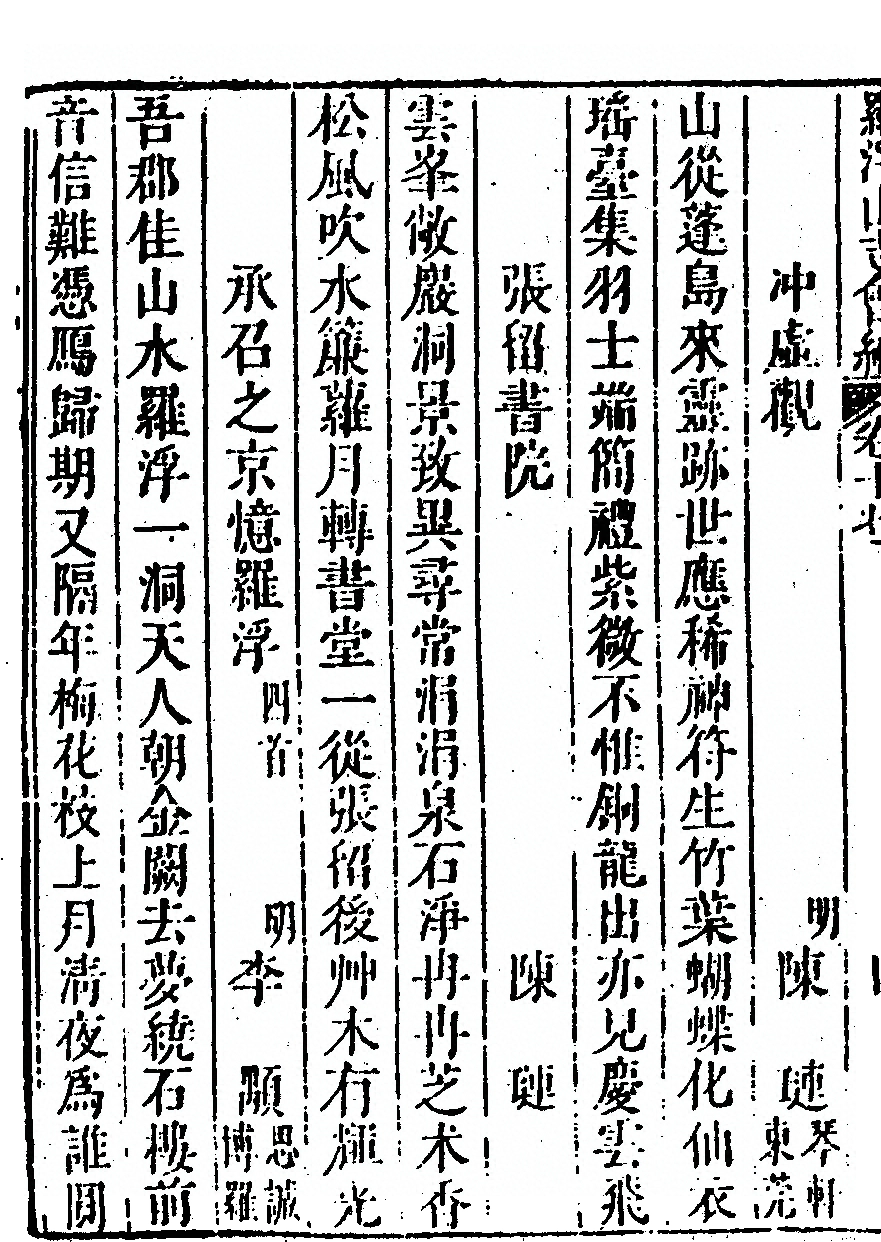 羅浮山志會編 卷十七
冲虛觀 明 陳 璉 琴軒 東莞
山從蓬島來靈跡世應稀神符生竹葉蝴蝶化仙衣
瑶臺集羽士端簡禮紫微不惟銅龍出亦見慶雲飛
張留書院 陳 璉
雲峯敞嚴洞景致異尋常涓涓泉石淨冉冉芝术香
松風吹水簾蘿月轉書堂一從張留後艸木有輝光
承召之京憶羅浮 四首 明 李 顒 思誠 博羅
吾郡佳山水羅浮一洞天人朝金闕去夢繞石樓前
音信難憑鴈歸期又隔年梅花枝上月淸夜爲誰圓